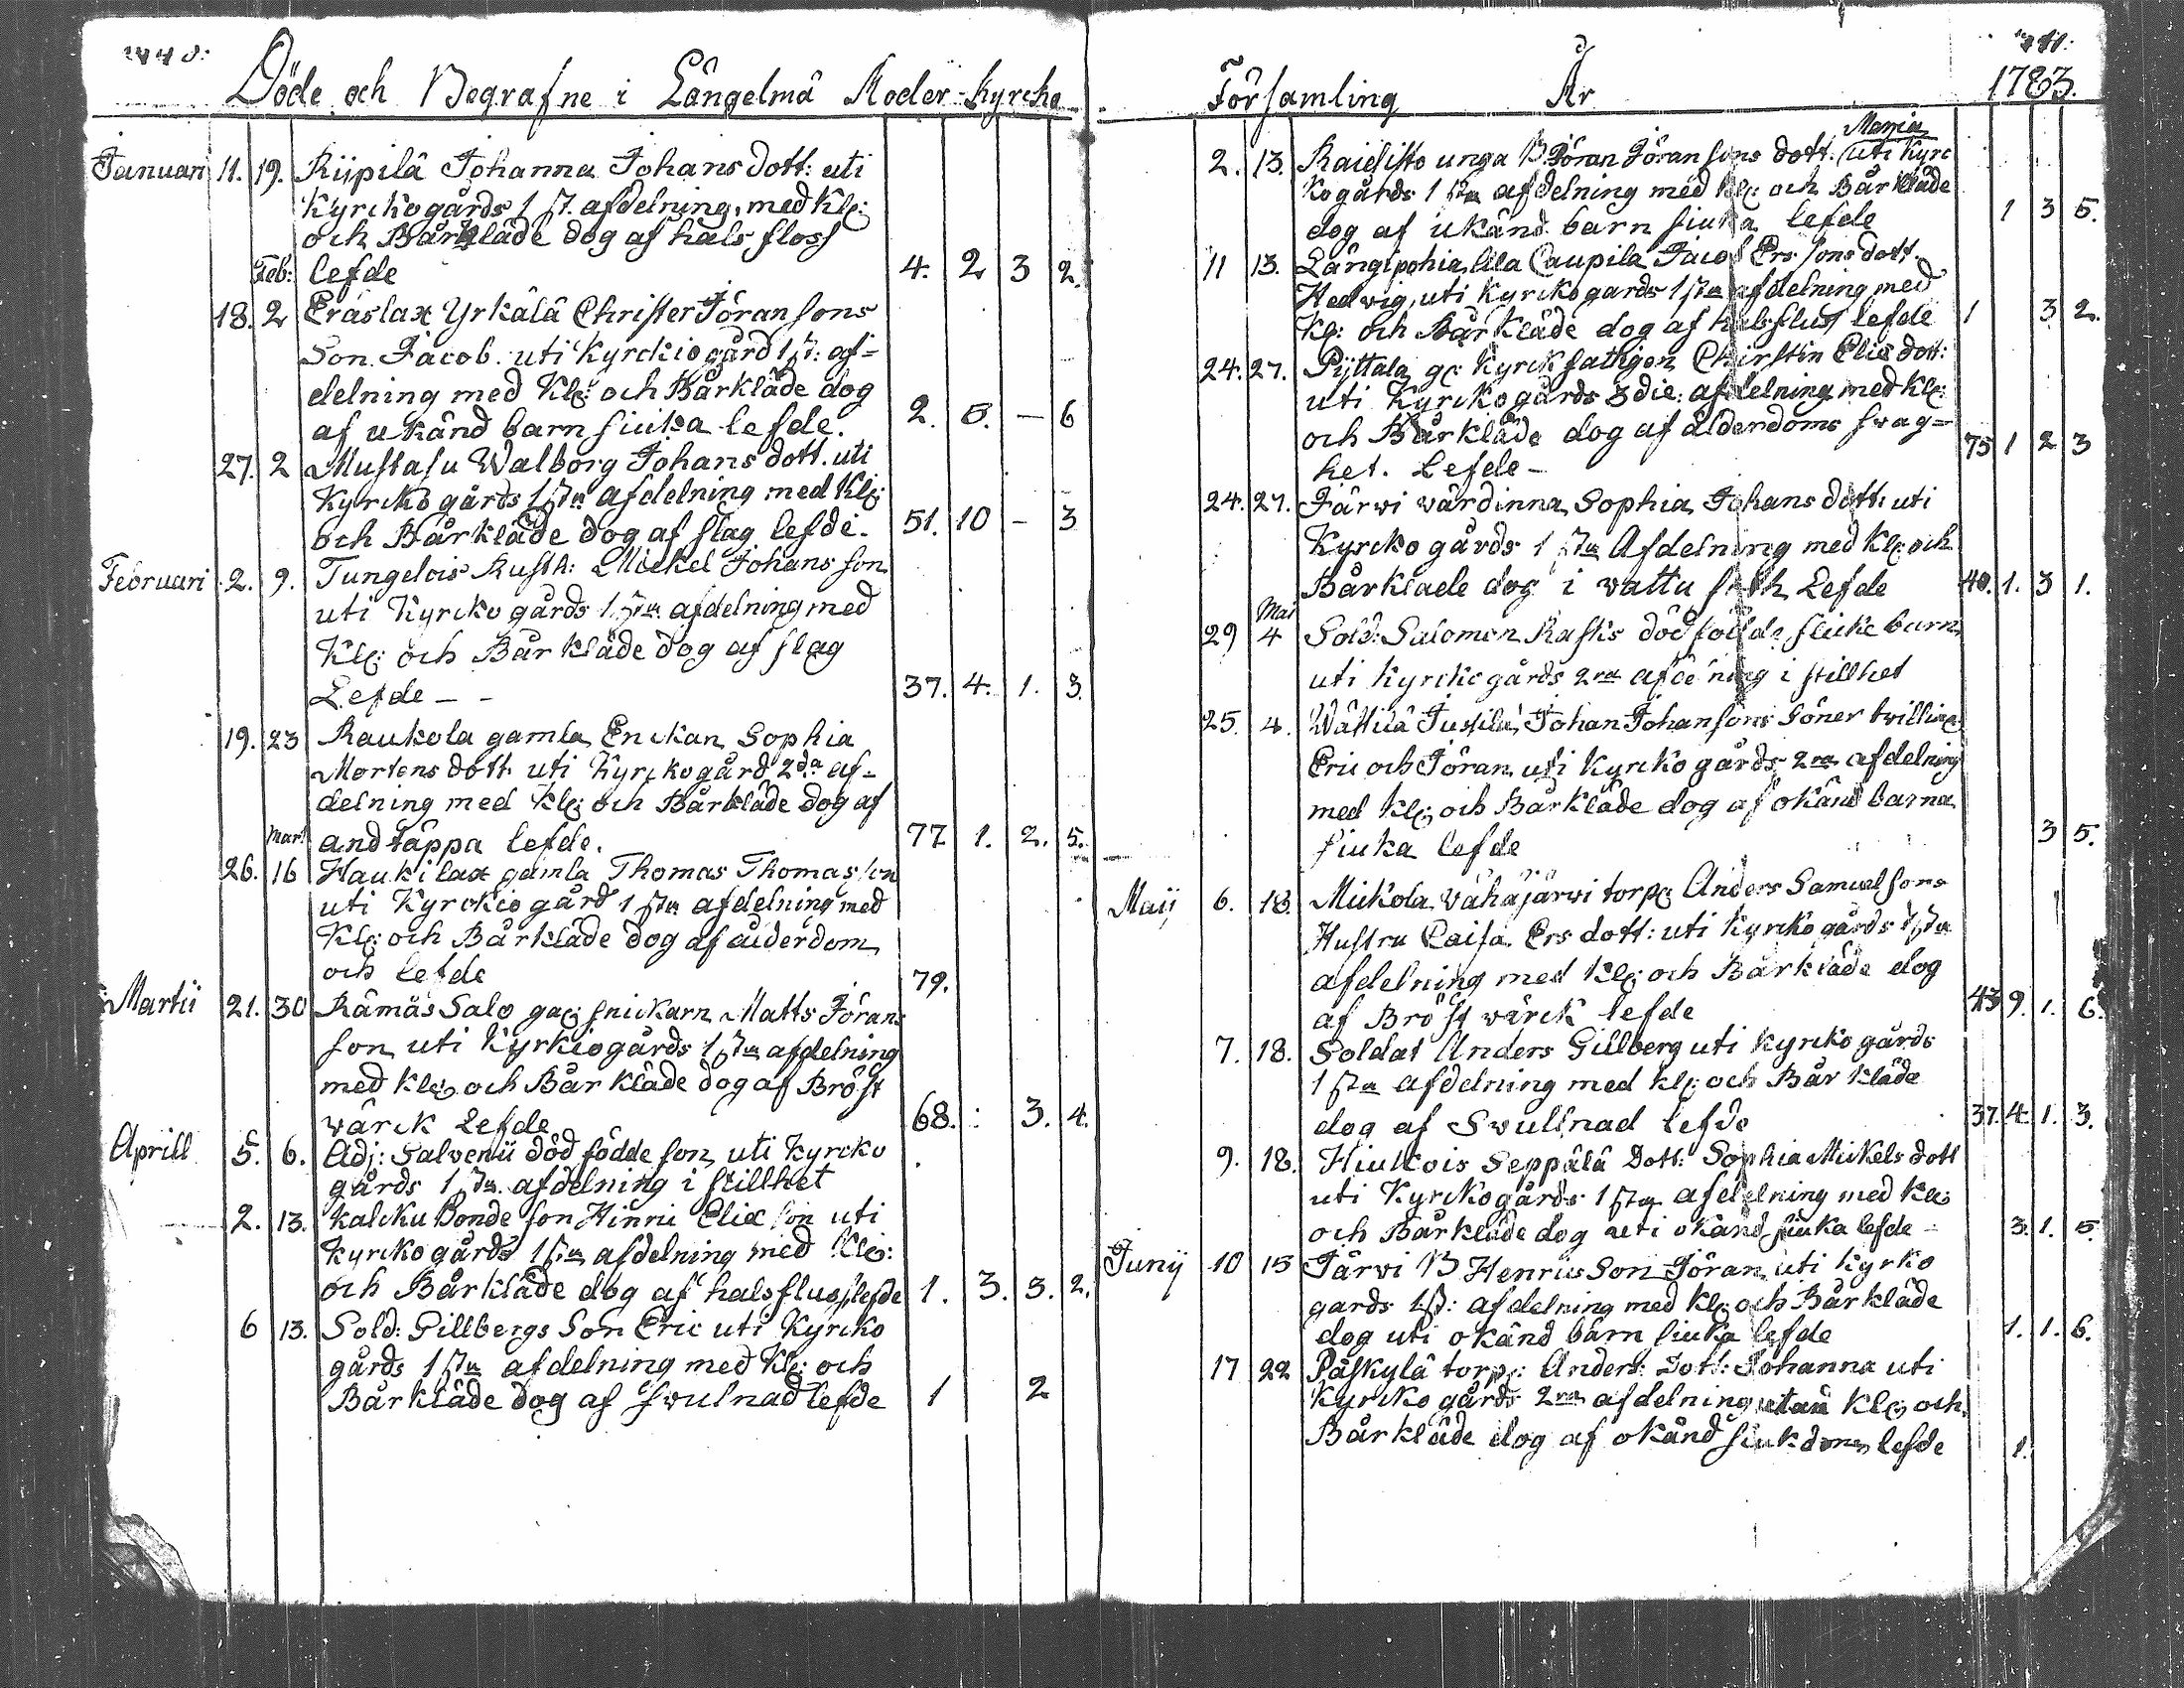 Döde och Begrafne i Längelmä Moder-Kyrcko
Januari 11. 19. Riipilä Johanna Johans dott: uti
Kyrckogårds 1 st. afdelning, med Kl:
och Bårkläde dog af hals floss
Feb: lefde 4. 2 3 2.
18. 2 Eräslax Yrkälä Christer Jöransons
Son Jacob. uti Kyrckiogård 1 st: af=
delning med Kl: och Bårkläde dog
af ukänd barn siuka lefde. 2. 5. — 6
27. 2 Mustasu Walborg Johans dott. uti
Kyrcko gårds 1 sta afdelning med Kl:
och Bårkläde dog af slag lefde. 51. 10 – 3
Februari 2. 9. Tungelois Rusth: Mickel Johans son
uti Kyrcko gårds 1 sta afdelning med
Kl: och Bårkläde dog af slag
Lefde – – 37. 4. 1. 3.
19. 23 Raukola gamla Enckan Sophia
Mortens dott uti Kyrckogård 2da af=
delning med Kl: och Bårkläde dog af
Mart andtäppa lefde. 77 1. 2. 5.
26. 16 Haukilax gamla Thomas Thomasson
uti Kyrckio gård 1 sta afdelning med
Kl: och Bårkläde dog af ålderdom
och lefde 79.
Martii 21. 30 Rämäs Salo snickarn Matts Jörans
son uti Kyrkiogårds 1 sta afdelning
med Kl: och Bårkläde dog af Bröst
wärck Lefde 68. : 3. 4.
Aprill 5. 6. Adj: Salvenii död födde son uti Kyrcko
gårds 1 sta. afdelning i stillhet
2. 13. Kalcku Bonde son Hinric Elix son uti
Kyrcko gårds 1 sta afdelning med Kl:
och Bårkläde dog af halsfluss lefde 1. 3. 3. 2.
6 13. Sold: Gillbergs Son Eric uti Kyrcko
gårds 1 sta afdelning med Kl: och
Bårkläde dog af swulnad lefde 1 2
Församling År 1783.
Maria
2. 13. unga B. Jöran Jöransons dott. uti Kyrc
kogårds 1 sta afdelning med Kl: och Bårkläde
dog af ukänd barn siuka lefde 1 3 5.
11 13. Längipohia Lilla Caupila Jacob Ers sons dott.
Hedwig, uti Kyrckogards 1 sta afdelning med
Kl: och Bårkläde dog af halsfluss lefde 1 3 2.
24. 27. Pyttala Kyrck fattigon Chirstin Elis dott:
uti Kyrckogårds 3die. afdelning med Kl:
och Bårkläde dog af ålderdoms swag=
het. Lefde – 75 1 2 3
24. 27. Järwi wärdinna Sophia Johans dott: uti
Kyrcko gårds 1 sta Afdelning med Kl: och
Bårklade dog i wattu Lefde 40. 1. 3 1.
Mai
29 4 Sold: Salomon Rasks död födde flicke barn
uti Kyrcko gårds 2ra afdelning i stillhet
25. 4. Jussila Johan Johansons Söner twilling
Eric och Jöran uti Kyrcko gårds 2ra afdelning
med Kl: och Bårkläde dog af okänd barna
siuka lefde 3 5.
Maij 6. 18. Mickola Wähäjärwi torp: Anders Samuelsons
Hustru Caisa Ers dott: uti Kyrcko gårds 1 sta
afdelning med Kl: och Bårkläde dog
af Bröst wärck lefde 43 9. 1. 6.
7. 18. Soldat Anders Gillberg uti Kyrcko gårds
1 sta afdelning med Kl: och Bårkläde
dog af Swullnad lefde 37. 4. 1. 3.
9. 18. Hiukois Seppälä Dott: Sophia Mickels dott
uti Kyrckogårds 1 sta afdelning med Kl:
och Bårkläde dog uti okänd siuka lefde – 3. 1. 5.
Junij 10 15 Järwi B Henrics Son Jöran uti Kyrko
gards 1 st: afdelning med Kl: och Bårkläde
dog uti okänd barn siuka lefde 1. 1. 6.
17 22 Päskylä torp: Anders: Dott: Johanna uti
Kyrcko gårds 2ra afdelning utan Kl: och
Bårkläde dog af okänd siukdom lefde 1.